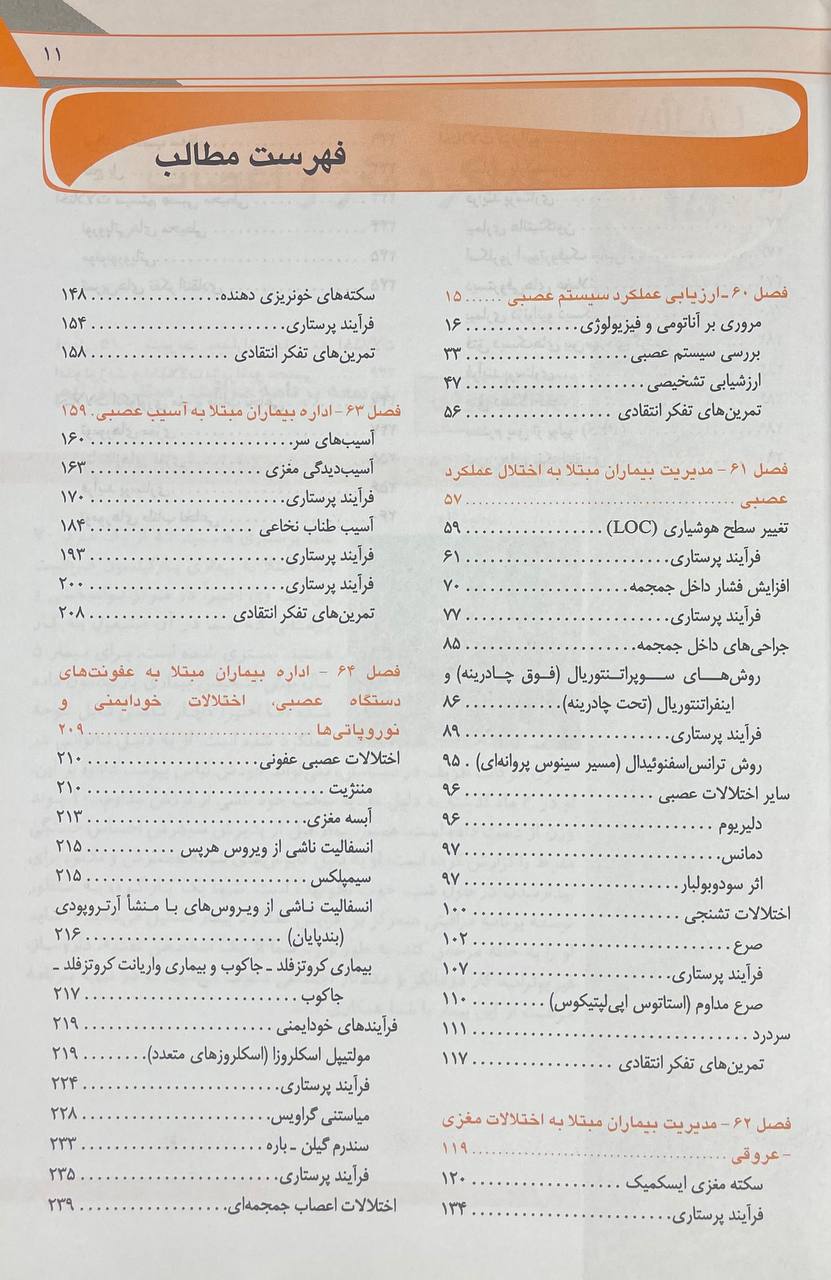 ۱۱
فهرست مطالب
فصل ۶۰ -ارزیابی عملکرد سیستم عصبی ...... ۱۵
مروری بر آناتومی و فیزیولوژی .............. ۱۶
بررسی سیستم عصبی .................... ۳۳
ارزشیابی تشخیصی ...................... ۴۷
تمرین‌های تفکر انتقادی .................. ۵۶
فصل ۶۱ - مدیریت بیماران مبتلا به اختلال عملکرد
عصبی ........................................ ۵۷
تغییر سطح هوشیاری (LOC) ................. ۵۹
فرآیند پرستاری .......................... ۶۱
افزایش فشار داخل جمجمه .................. ۷۰
فرآیند پرستاری .......................... ۷۷
جراحی‌های داخل جمجمه .................... ۸۵
روش‌های سوپراتنتوریال (فوق چادرینه) و
اینفراتنتوریال (تحت چادرینه) ............ ۸۶
فرآیند پرستاری .......................... ۸۹
روش ترانس‌اسفنوئیدال (مسیر سینوس پروانه‌ای) . ۹۵
سایر اختلالات عصبی ...................... ۹۶
دلیریوم ............................... ۹۶
دمانس ................................ ۹۷
اثر سودوبولبار .......................... ۹۷
اختلالات تشنجی ........................ ۱۰۰
صرع ................................ ۱۰۲
فرآیند پرستاری ......................... ۱۰۷
صرع مداوم (استاتوس اپی‌لپتیکوس) ......... ۱۱۰
سردرد ................................. ۱۱۱
تمرین‌های تفکر انتقادی .................. ۱۱۷
فصل ۶۲ - مدیریت بیماران مبتلا به اختلالات مغزی
- عروقی .................................... ۱۱۹
سکته مغزی ایسکمیک .................... ۱۲۰
فرآیند پرستاری ......................... ۱۳۴
سکته‌های خونریزی دهنده ................ ۱۴۸
فرآیند پرستاری ......................... ۱۵۴
تمرین‌های تفکر انتقادی .................. ۱۵۸
فصل ۶۳ - اداره بیماران مبتلا به آسیب عصبی . ۱۵۹
آسیب‌های سر .......................... ۱۶۰
آسیب‌دیدگی مغزی ...................... ۱۶۳
فرآیند پرستاری ......................... ۱۷۰
آسیب طناب نخاعی ...................... ۱۸۴
فرآیند پرستاری ......................... ۱۹۳
فرآیند پرستاری ......................... ۲۰۰
تمرین‌های تفکر انتقادی .................. ۲۰۸
فصل ۶۴ - اداره بیماران مبتلا به عفونت‌های
دستگاه عصبی، اختلالات خودایمنی و
نوروپاتی‌ها .................................. ۲۰۹
اختلالات عصبی عفونی ..................... ۲۱۰
مننژیت ............................... ۲۱۰
آبسه مغزی ............................ ۲۱۳
انسفالیت ناشی از ویروس هرپس ........... ۲۱۵
سیمپلکس ............................. ۲۱۵
انسفالیت ناشی از ویروس‌های با منشأ آرتروپودی
(بندپایان) ............................ ۲۱۶
بیماری کروتزفلد ـ جاکوب و بیماری واریانت کروتزفلد ـ
جاکوب ............................... ۲۱۷
فرآیندهای خودایمنی ...................... ۲۱۹
مولتیپل اسکلروزا (اسکلروزهای متعدد) ....... ۲۱۹
فرآیند پرستاری ......................... ۲۲۴
میاستنی گراویس ........................ ۲۲۸
سندرم گیلن ـ باره ...................... ۲۳۳
فرآیند پرستاری ......................... ۲۳۵
اختلالات اعصاب جمجمه‌ای .................. ۲۳۹